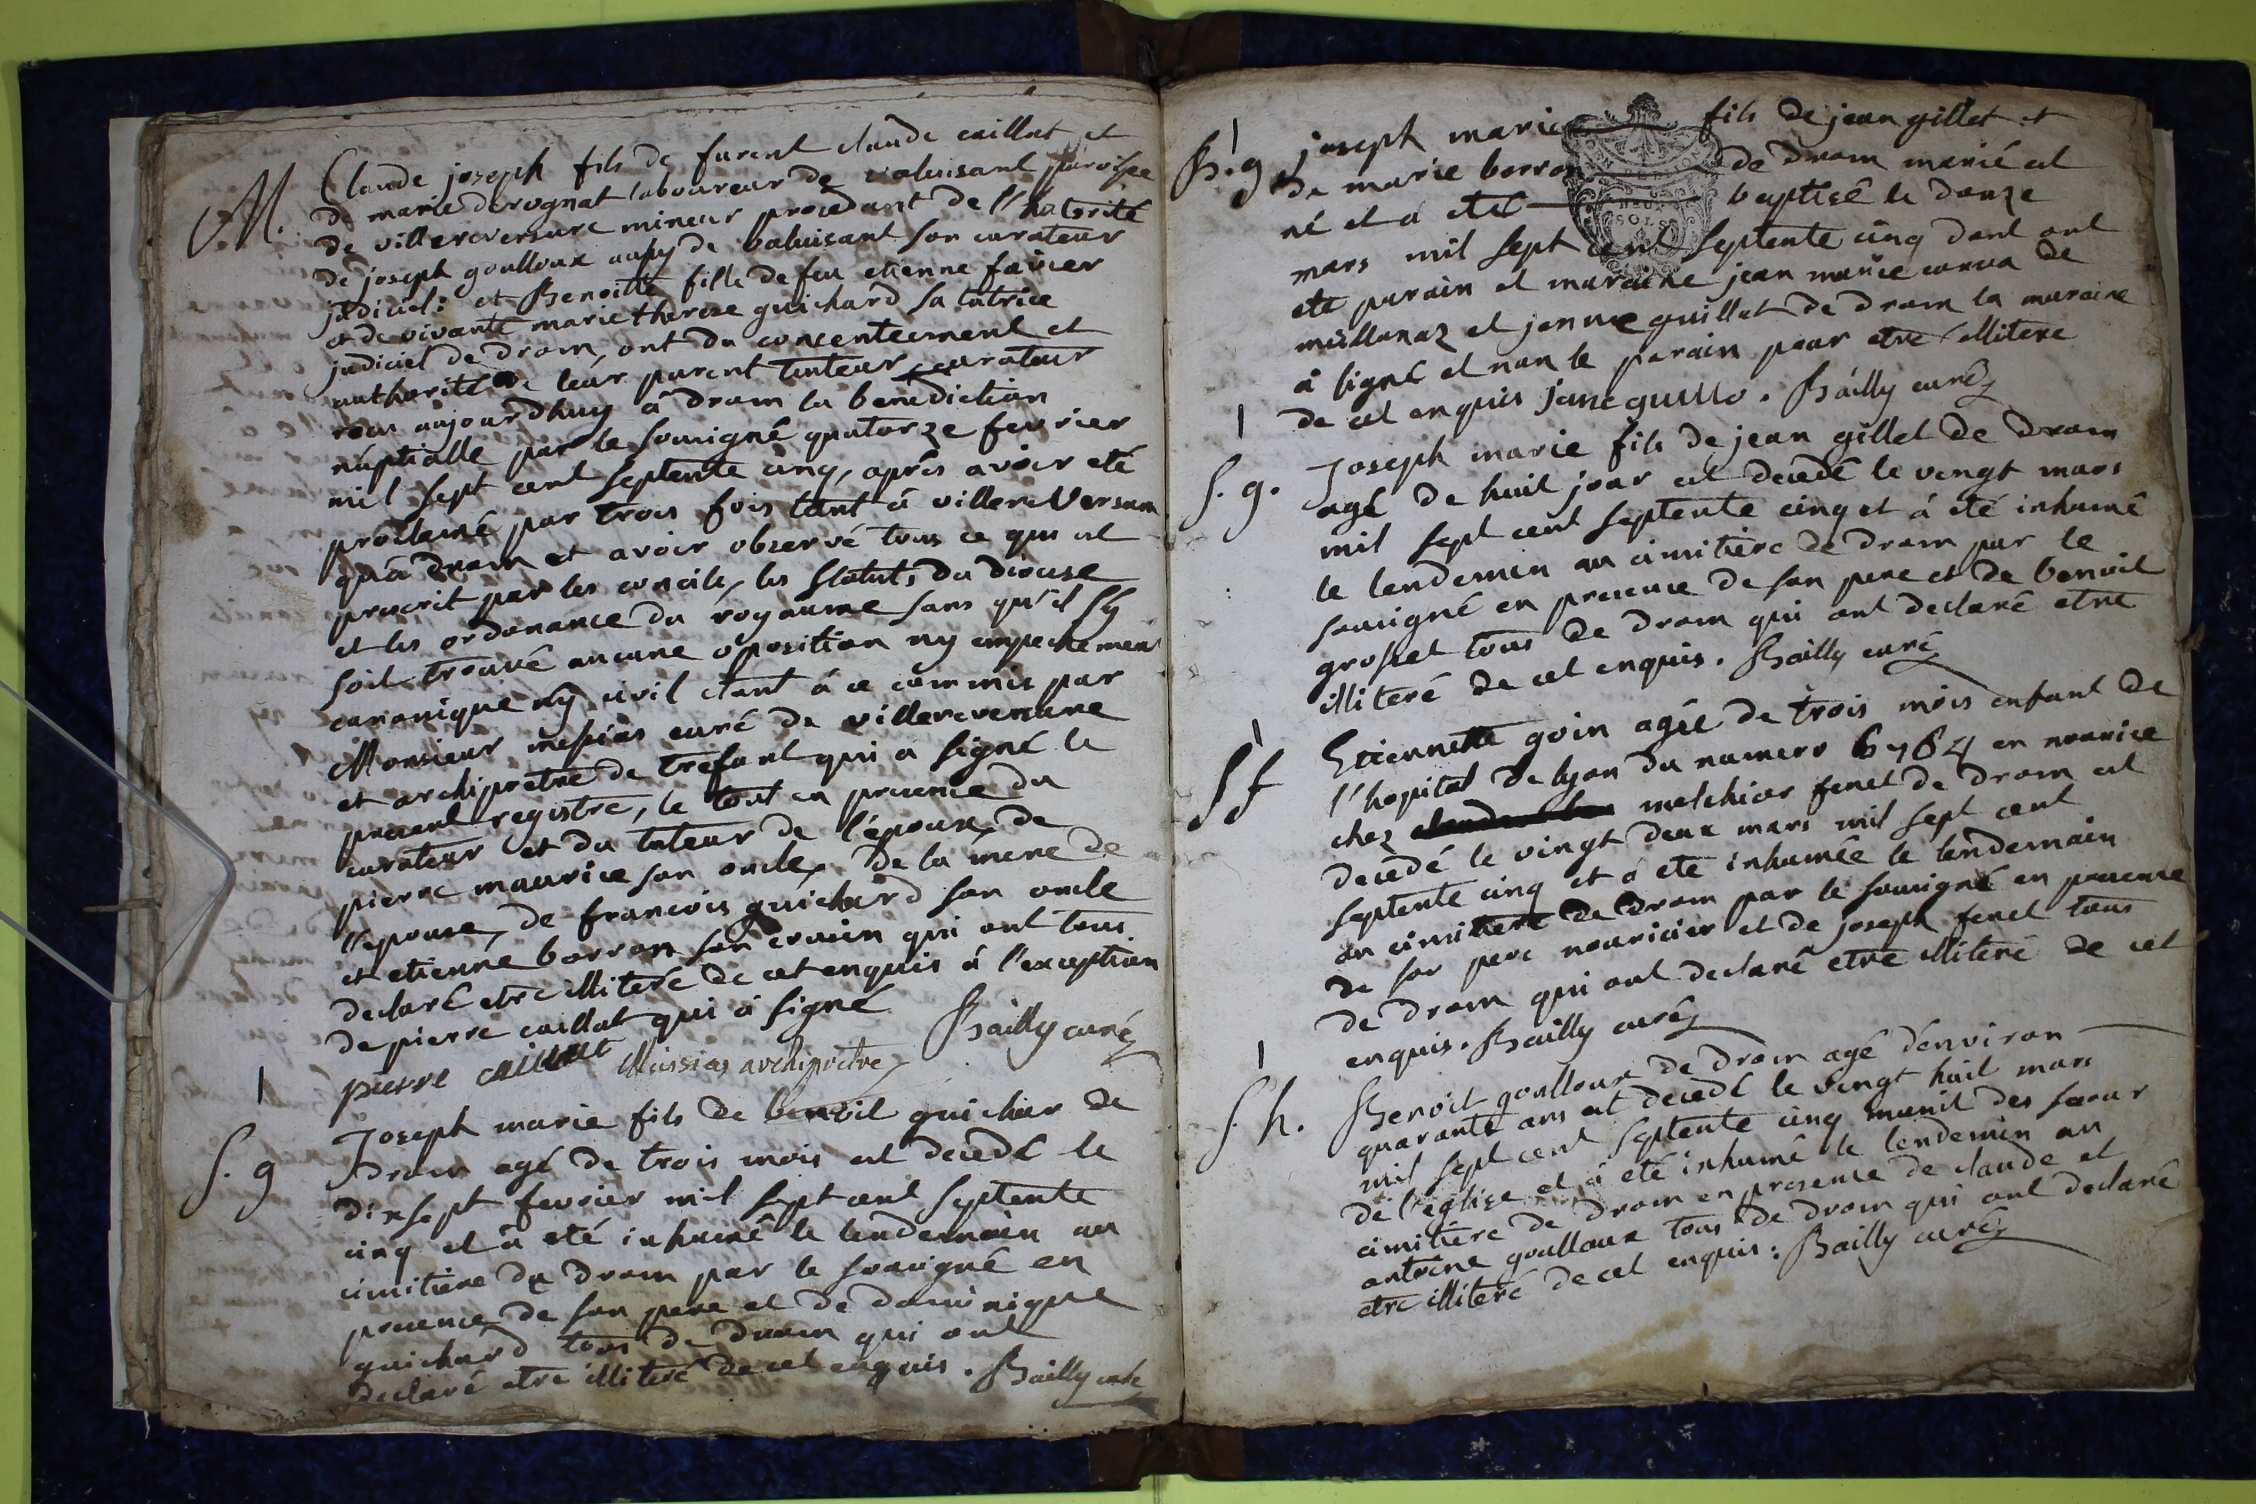 M. Claude joseph fils de furent claude caillat et
de marie derognat laboureur de valuisant paroisse
de villereversure mineur procedant de l'hatorité
de joseph goulloux aussy de valuisant son curateur
judiciel: et Benoitte fille de feu etienne favier
et de vivante marie therese guichard sa tutrice
judiciel de drom, ont du concentement et
authorité de leur parent tuteur, curateur
recus aujourdhuy à drom la benediction
nuptialle par le sousigné quatorze fevrier
mil sept cent septente cinq, aprés avoir eté
proclamé par trois fois tant à villereversure
qu'à drom et avoir observé tous ce qui est
prescrit par les concile, les statuts du diocese
et les ordonance du royaume sans qu'il sy
soit trouvé aucune oposition ny empechement
canonique ny civil etant à ce commis par
Monsieur messias curé de villereversure
et archipretre de trefort qui a signé le
present registre, le tout en presence du
curateur et du tuteur de l'epoux, de
pierre maurice son oncle, de la mere de
l'epouse, de francois guichard son oncle
et etienne borron son cousin qui ont tous
declaré etre illiteré de cet enquis à l'exception
de pierre caillat qui à signé Bailly curé
pierre caillat Messias archipretre
S. g Joseph marie fils de benoit guichar de
Drom agé de trois mois est decedé le
dixsept fevrier mil sept cent septente
cinq et à eté inhumé le lendemain au
cimitiere de drom par le sousigné en
presence de son pere et de dominique
guichard tous de drom qui ont
declaré etre illiteré de cet enquis. Bailly curé
B. g joseph marie fils de jean gillet et
de marie borron de drom marié est
né et à eté baptisé le douze
mars mil sept cent septente cinq dont ont
eté parain et maraine jean marie carva de
meillonaz et jenne guillat de drom la maraine
à signé et non le parain pour etre illitere
de cet enquis jane guillo. Bailly curé
S. g. Joseph marie fils de jean gillet de drom
agé de huit jour est decedé le vingt mars
mil sept cent septente cinq et à eté inhumé
le lendemin au cimitiere de drom par le
sousigné en presence de son pere et de benoit
grosset tous de drom qui ont declaré etre
illiteré de cet enquis. Bailly curé
S f Etiennette goin agée de trois mois enfant de
l'hopital de lyon du numero 6764 en nourice
chez melchior fenet de drom est
decedé le vingt deux mars mil sept cent
septente cinq et à eté inhumée le lendemain
au cimitiere de drom par le sousigné en presence
de son pere nouricier et de joseph fenet tous
de drom qui ont declaré etre illiteré de cet
enquis. Bailly curé
S. h. Benoit goulloux de drom agé d'environ
quarante ans est decedé le vingt huit mars
mil sept cent septente cinq munit des secour
de l'eglise et à eté inhumé le lendemin au
cimitiere de drom en presence de claude et
antoine goulloux tous de drom qui ont declaré
etre illiteré de cet enquis: Bailly curé